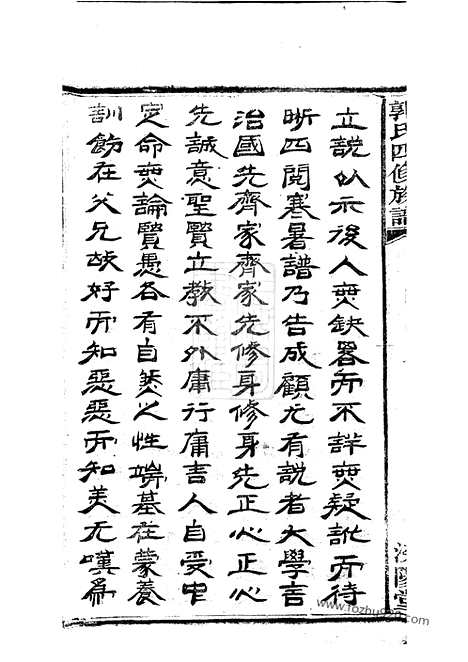 郭氏四修族譜
汾陽堂
立說以示後人無缺畧而不詳無疑訛而待
晰四閱寒暑譜乃告成顧尤有說者大學言
治國先齊家齊家先修身修身先正心正心
先誠意聖賢立教不外庸行庸言人自受中
定命無論賢愚各有自然之性端基在蒙養
訓飭在父兄故好而知惡惡而知美尤嘆為